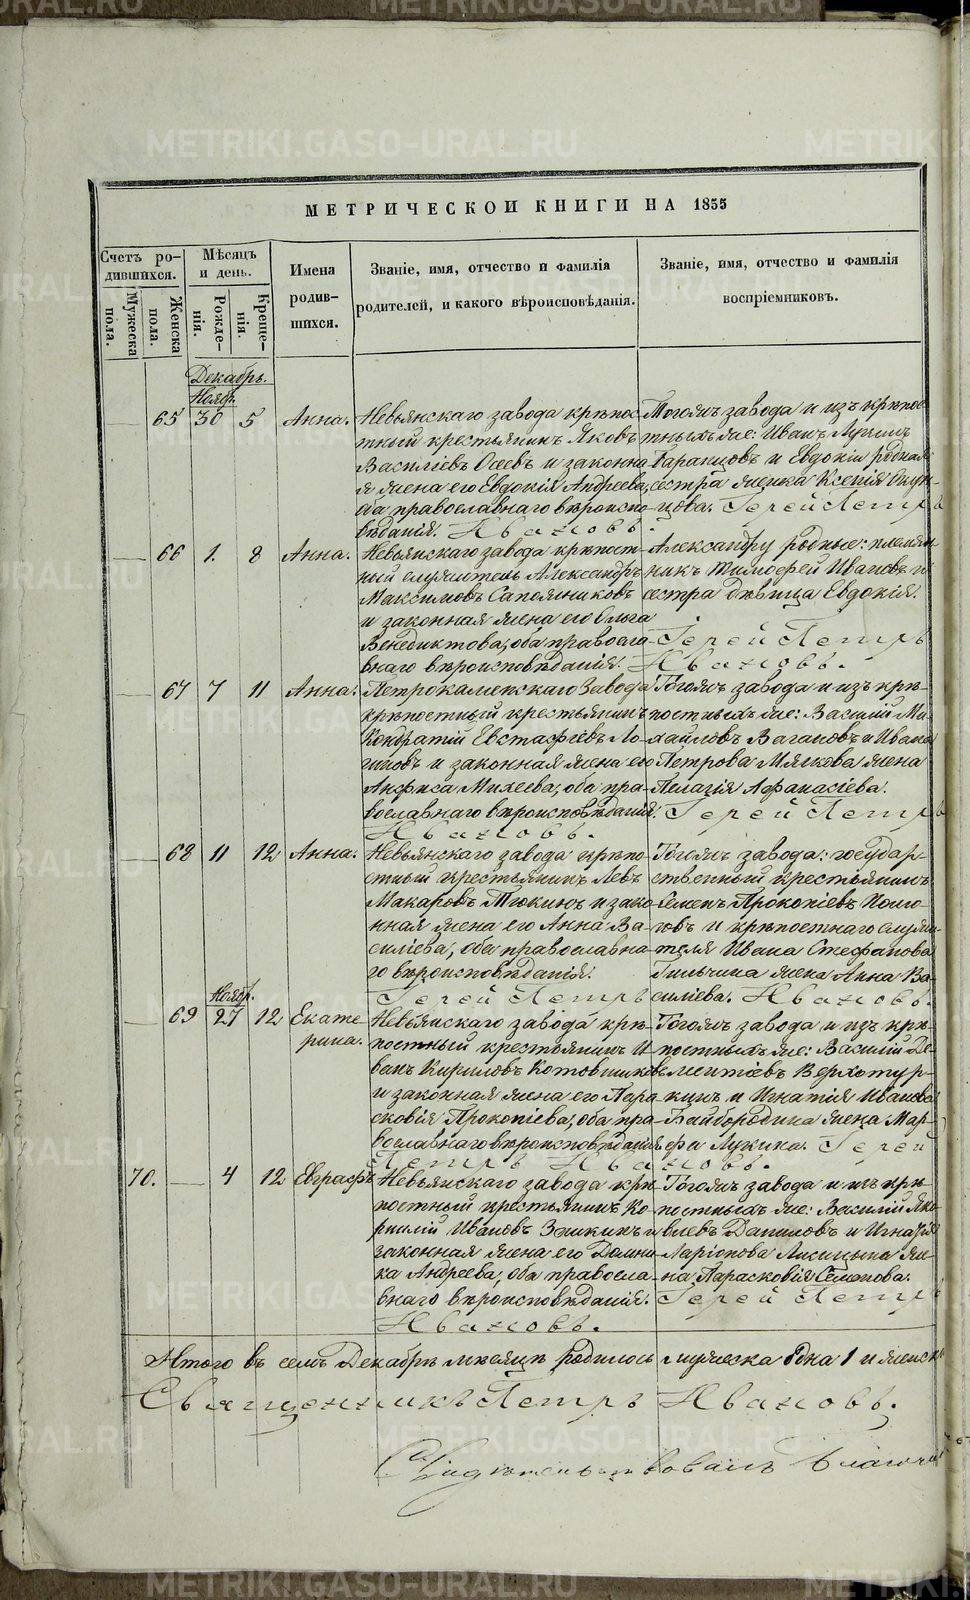 METRIKI.GASO-URAL.RU
МЕТРИЧЕСКОИ КНИГИ НА 1855
Счетъ ро-
дившихся.
Мужеска
пола.
Женска
пола.
Мѣсяцъ
и день.
Рожде-
нія.
Креще-
нія.
Имена
родив-
шихся.
Званіе, имя, отчество и фамилія
родителей, и какого вѣроисповѣданія.
Званіе, имя, отчество и фамилія
воспріемниковъ.
Декабрь.
Ноябр.
65 30 5 Анна.
Невьянскаго завода крѣпос-
тный крестьянинъ Яковъ
Василіевъ Осеевъ и законна
я жена его Евдокія Андреева,
оба православнаго вѣроиспо-
вѣданія.
Тогожъ завода и изъ крѣпос
тныхъ же: Иванъ
и Евдокіи родная
сестра женка Ксенія
Іерей Петръ
Ивановъ.
66 1. 8 Анна.
Невьянскаго завода крѣпост-
ный служитель Александръ
Максимовъ Сапожниковъ
и законная жена его Ольга
Венедиктова, оба правосла-
внаго вѣроисповѣданія.
Александру родные: племян-
никъ Тимофей Ивановъ и
сестра дѣвица Евдокія.
Іерей Петръ
Ивановъ.
67 7 11 Анна.
Петрокаменскаго Завода
крѣпостный крестьянинъ
Кондратій Евстафіевъ Ло-
гиновъ и законная жена его
Анфиса Михеева, оба пра-
вославнаго вѣроисповѣданія.
Тогожъ завода и изъ крѣ-
постныхъ же: Василій Ми-
хайловъ Вагановъ и Ивана
Петрова Мягкова жена
Пелагія Афанасіева.
Іерей Петръ
Ивановъ.
68 11 12 Анна.
Невьянскаго завода крѣпо-
стный крестьянинъ Левъ
Макаровъ Тюкинъ и зако-
нная жена его Анна Ва-
силіева, оба православна-
го вѣроисповѣданія.
Іерей Петръ
Тогожъ завода: государ-
ственный крестьянинъ
Семенъ Прокопіевъ
и крѣпостнаго служи-
теля Ивана Стефанова
жена Анна Ва-
силіева. Ивановъ.
Ноябр.
69 27 12 Екате-
рина.
Невьянскаго завода крѣ-
постный крестьянинъ И-
ванъ Кириловъ Котовщиковъ
и законная жена его Пара-
сковія Прокопіева, оба пра-
вославнаго вѣроисповѣданія
Тогожъ завода и изъ крѣ-
постныхъ же: Василій Де-
ментіевъ Верхотур-
и Игнатія Иванова
Байбородина жена Мар-
фа Лукина. Іерей
Петръ Ивановъ.
70. 4 12 Евграфъ
Невьянскаго завода крѣ-
постный крестьянинъ Ко-
рнилій Ивановъ Зыкинъ и
законная жена его Домни-
ка Андреева, оба правосла-
внаго вѣроисповѣданія.
Тогожъ завода и изъ крѣ-
постныхъ же: Василій Яко-
влевъ Даниловъ и Игнатія
Ларіонова Лисицына же-
на Парасковія Семенова.
Іерей Петръ
Ивановъ.
Итого въ семъ Декабрѣ мѣсяцѣ родилось мужеска одна 1 и женска
Священникъ Петръ Ивановъ.
Свидѣтельствовалъ благочин